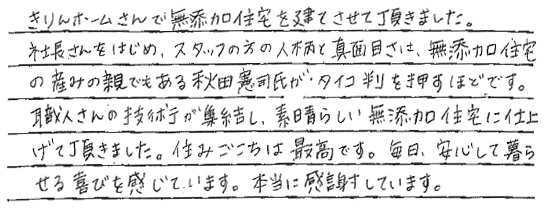 きりんホームさんで無添加住宅を建てさせて頂きました。
社長さんをはじめ、スタッフの方の人柄と真面目さは、無添加住宅
の産みの親でもある秋田憲司氏が、タイコ判を押すほどです。
職人さんの技術が集結し、素晴らしい無添加住宅に仕上
げて頂きました。住みごこちは最高です。毎日、安心して暮ら
せる喜びを感じています。本当に感謝しています。